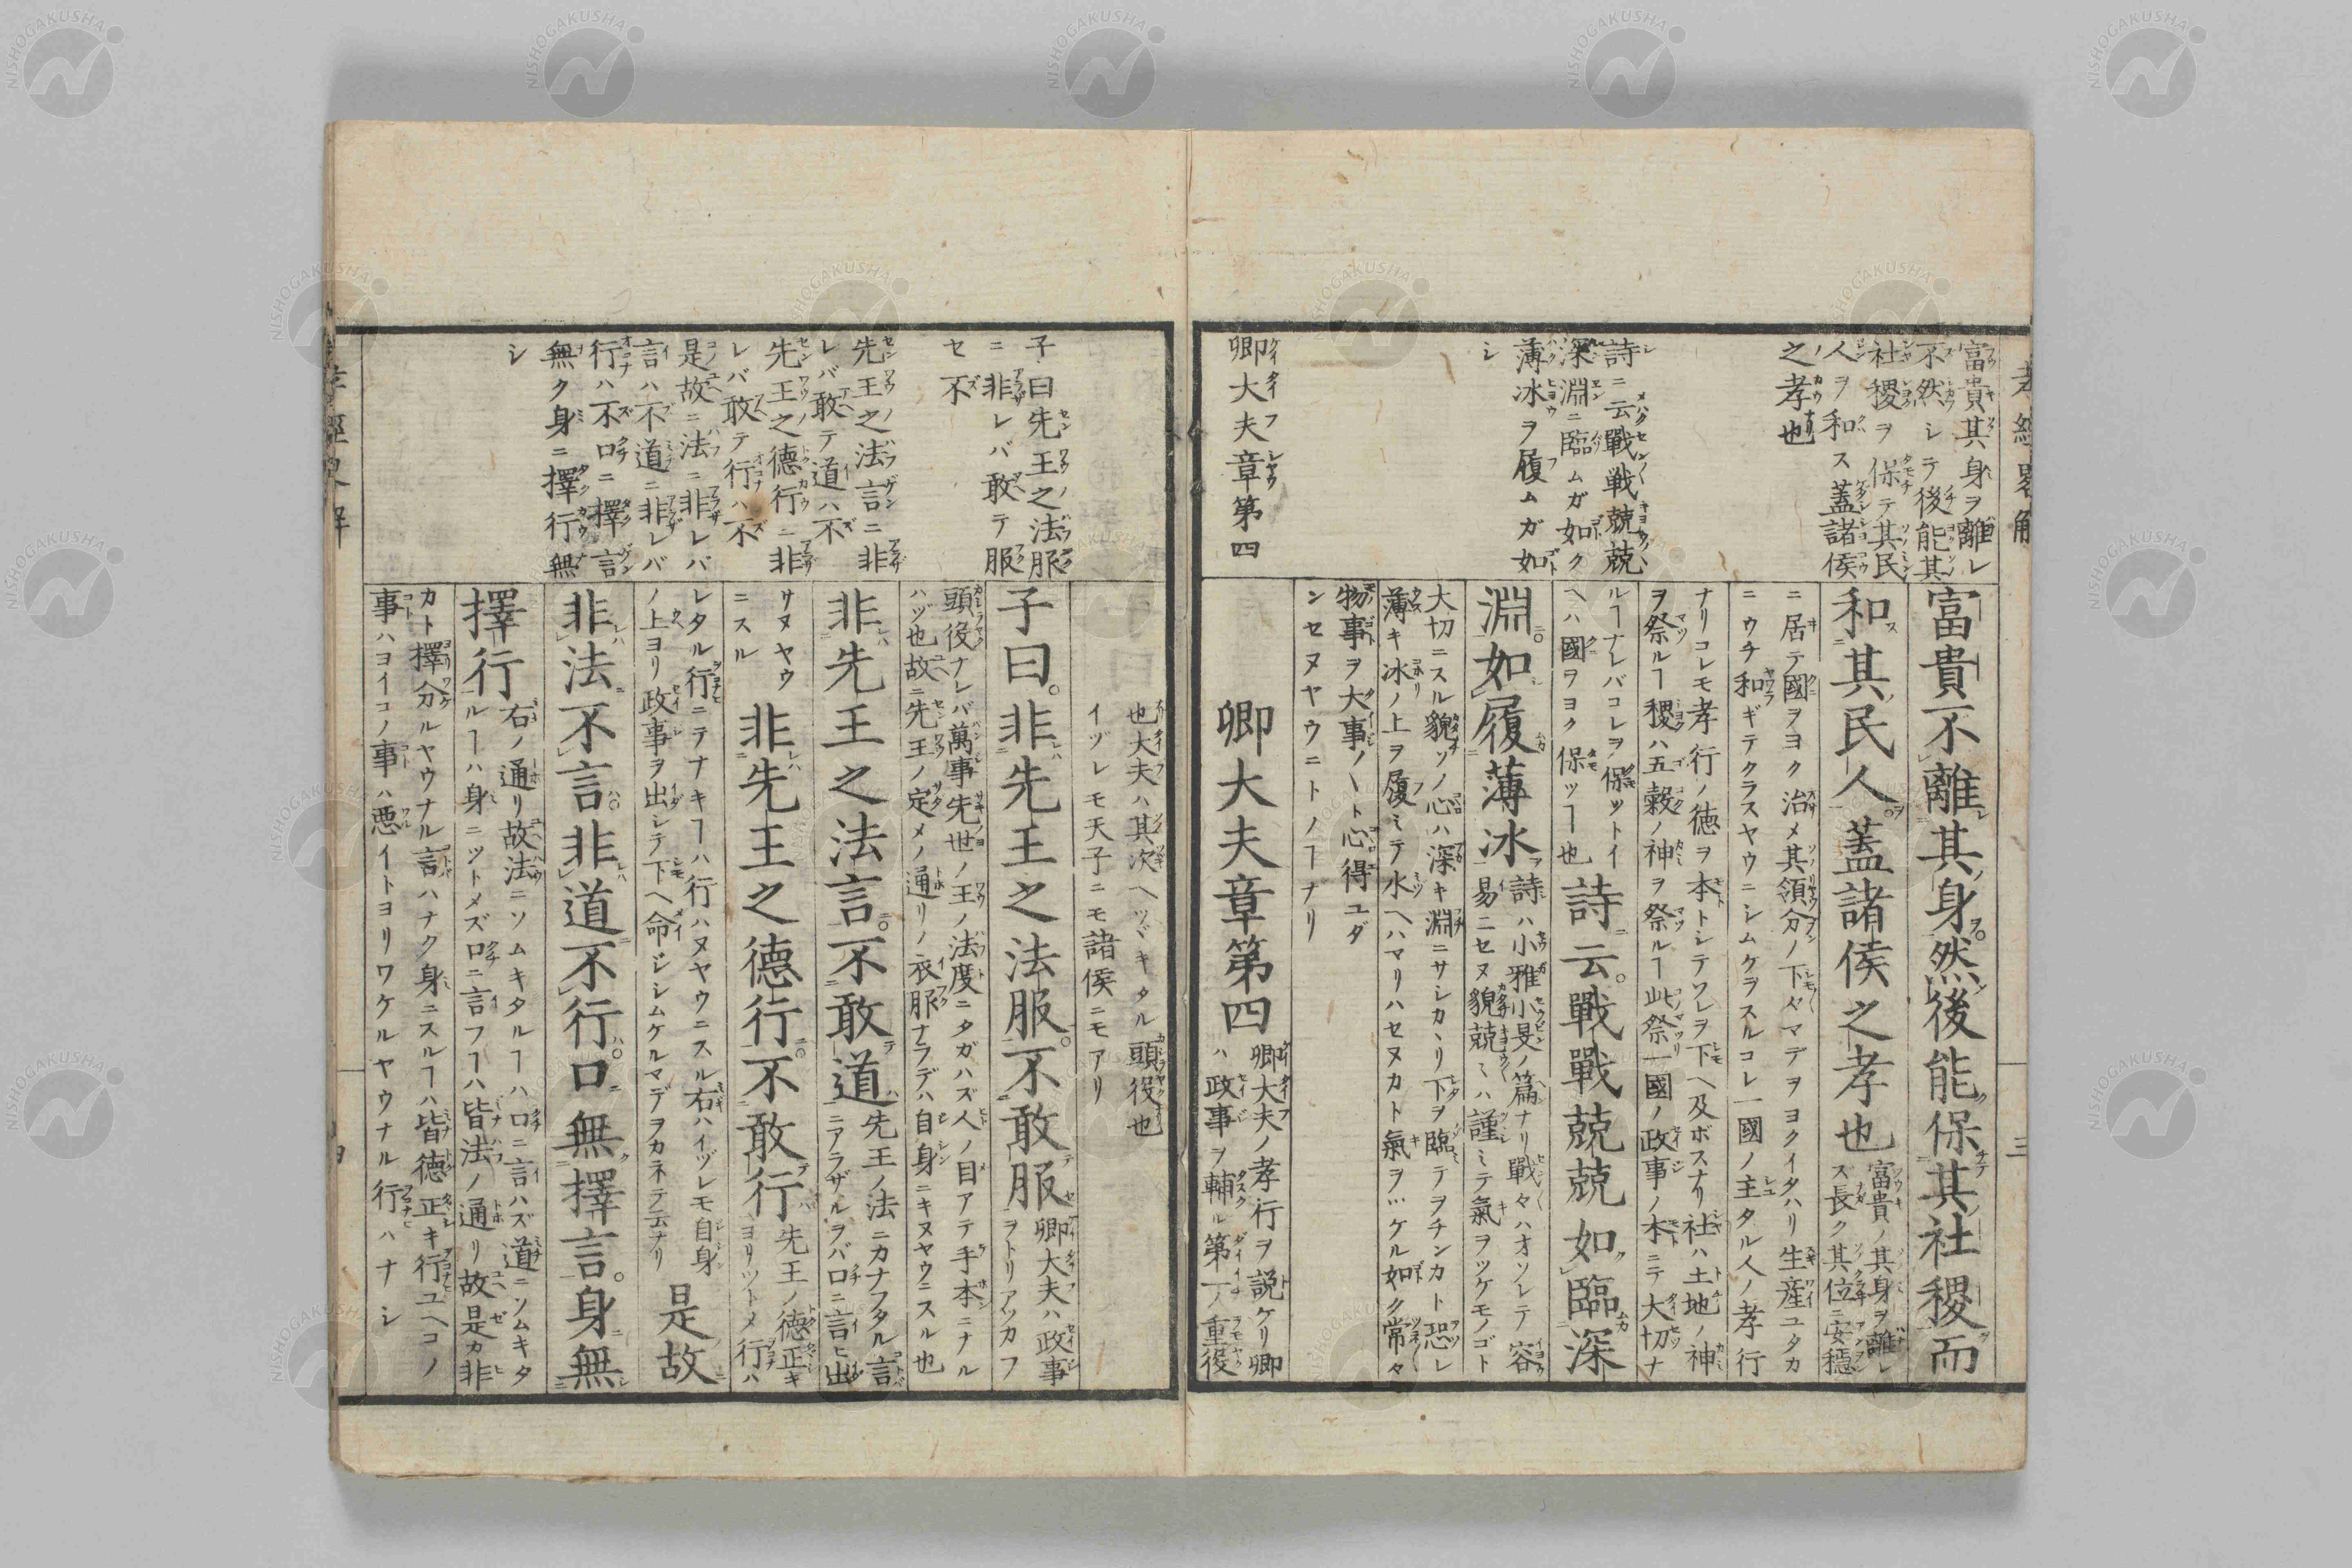 孝經畧解
三
富貴其身ヲ離レ
不然シテ後能其
社稷ヲ保テ其民
人ヲ和ス蓋諸侯
之孝也
詩ニ云戰戰兢兢
深淵ニ臨ムガ如ク
薄冰ヲ履ムガ如
シ
卿大夫章第四
富貴不離其身然後能保其社稷而
和其民人蓋諸侯之孝也
富貴ノ其身ヲ離レ
ズ長ク其位ニ安穏
ニ居テ國ヲヨク治メ其領分ノ下々マデヲヨクイタハリ生産ユタカ
ニウチ和ギテクラスヤウニシムケヲスルコレ一國ノ主タル人ノ孝行
ナリコレモ孝行ノ徳ヲ本トシテソレヲ下ヘ及ボスナリ社ハ土地ノ神
ヲ祭ルヿ稷ハ五穀ノ神ヲ祭ルヿ此祭一國ノ政事ノ本ニテ大切ナ
ルヿナレバコレヲ保ツトイ
ヘハ國ヲヨク保ツヿ也
詩云。戰戰兢兢如臨深
淵如履薄冰
詩ハ小雅小旻ノ篇ナリ戰々ハオソレテ容
易ニセヌ貌兢々ハ謹ミテ氣ヲツケモノゴト
大切ニスル貌ソノ心ハ深キ淵ニサシカヽリ下ヲ臨テヲチンカト恐レ
薄キ冰ノ上ヲ履ミテ水ヘハマリハセヌカト氣ヲツケル如ク常々
物事ヲ大事〳〵ト心得ユダ
ンセヌヤウニトノヿナリ
卿大夫章第四
卿大夫ノ孝行ヲ説ケリ卿
ハ政事ヲ輔ル第一ノ重役
子曰先王之法服
ニ非レバ敢テ服
セ不
先王之法言ニ非
レバ敢テ道ハ不
先王之德行ニ非
レバ敢テ行ハ不
是故ニ法ニ非レバ
言ハ不道ニ非レバ
行ハ不口ニ擇言
無ク身ニ擇行無
シ
也大夫ハ其次ヘツヾキタル頭役也
イヅレモ天子ニモ諸侯ニモアリ
子曰。非先王之法服。不敢服
卿大夫ハ政事
ヲトリアツカフ
頭役ナレバ萬事先世ノ王ノ法度ニタガハズ人ノ目アテ手本ニナル
ハヅ也故ニ先王ノ定メノ通リノ衣服ナラデハ自身ニキヌヤウニスル也
非先王之法言。不敢道
先王ノ法ニカナフタル言
ニアラザルヲバ口ニ言ヒ出
サヌヤウ
ニスル
非先王之德行不敢行
先王ノ徳正キ
ヨリツトメ行ハ
レタル行ニテナキヿハ行ハヌヤウニスル右ハイヅレモ自身
ノ上ヨリ政事ヲ出シテ下ヘ命ジシムケルマデヲカネテ云ナリ
是故
非法不言非道不行口無擇言。身無
擇行
右ノ通リ故法ニソムキタルヿハ口ニ言ハズ道ニソムキタ
ルヿハ身ニツトメズ口ニ言フヿハ皆法ノ通リ故是カ非
カト擇分ルヤウナル言ハナク身ニスルヿハ皆徳正キ行ユヘコノ
事ハヨイコノ事ハ悪イトヨリワケルヤウナル行ハナシ